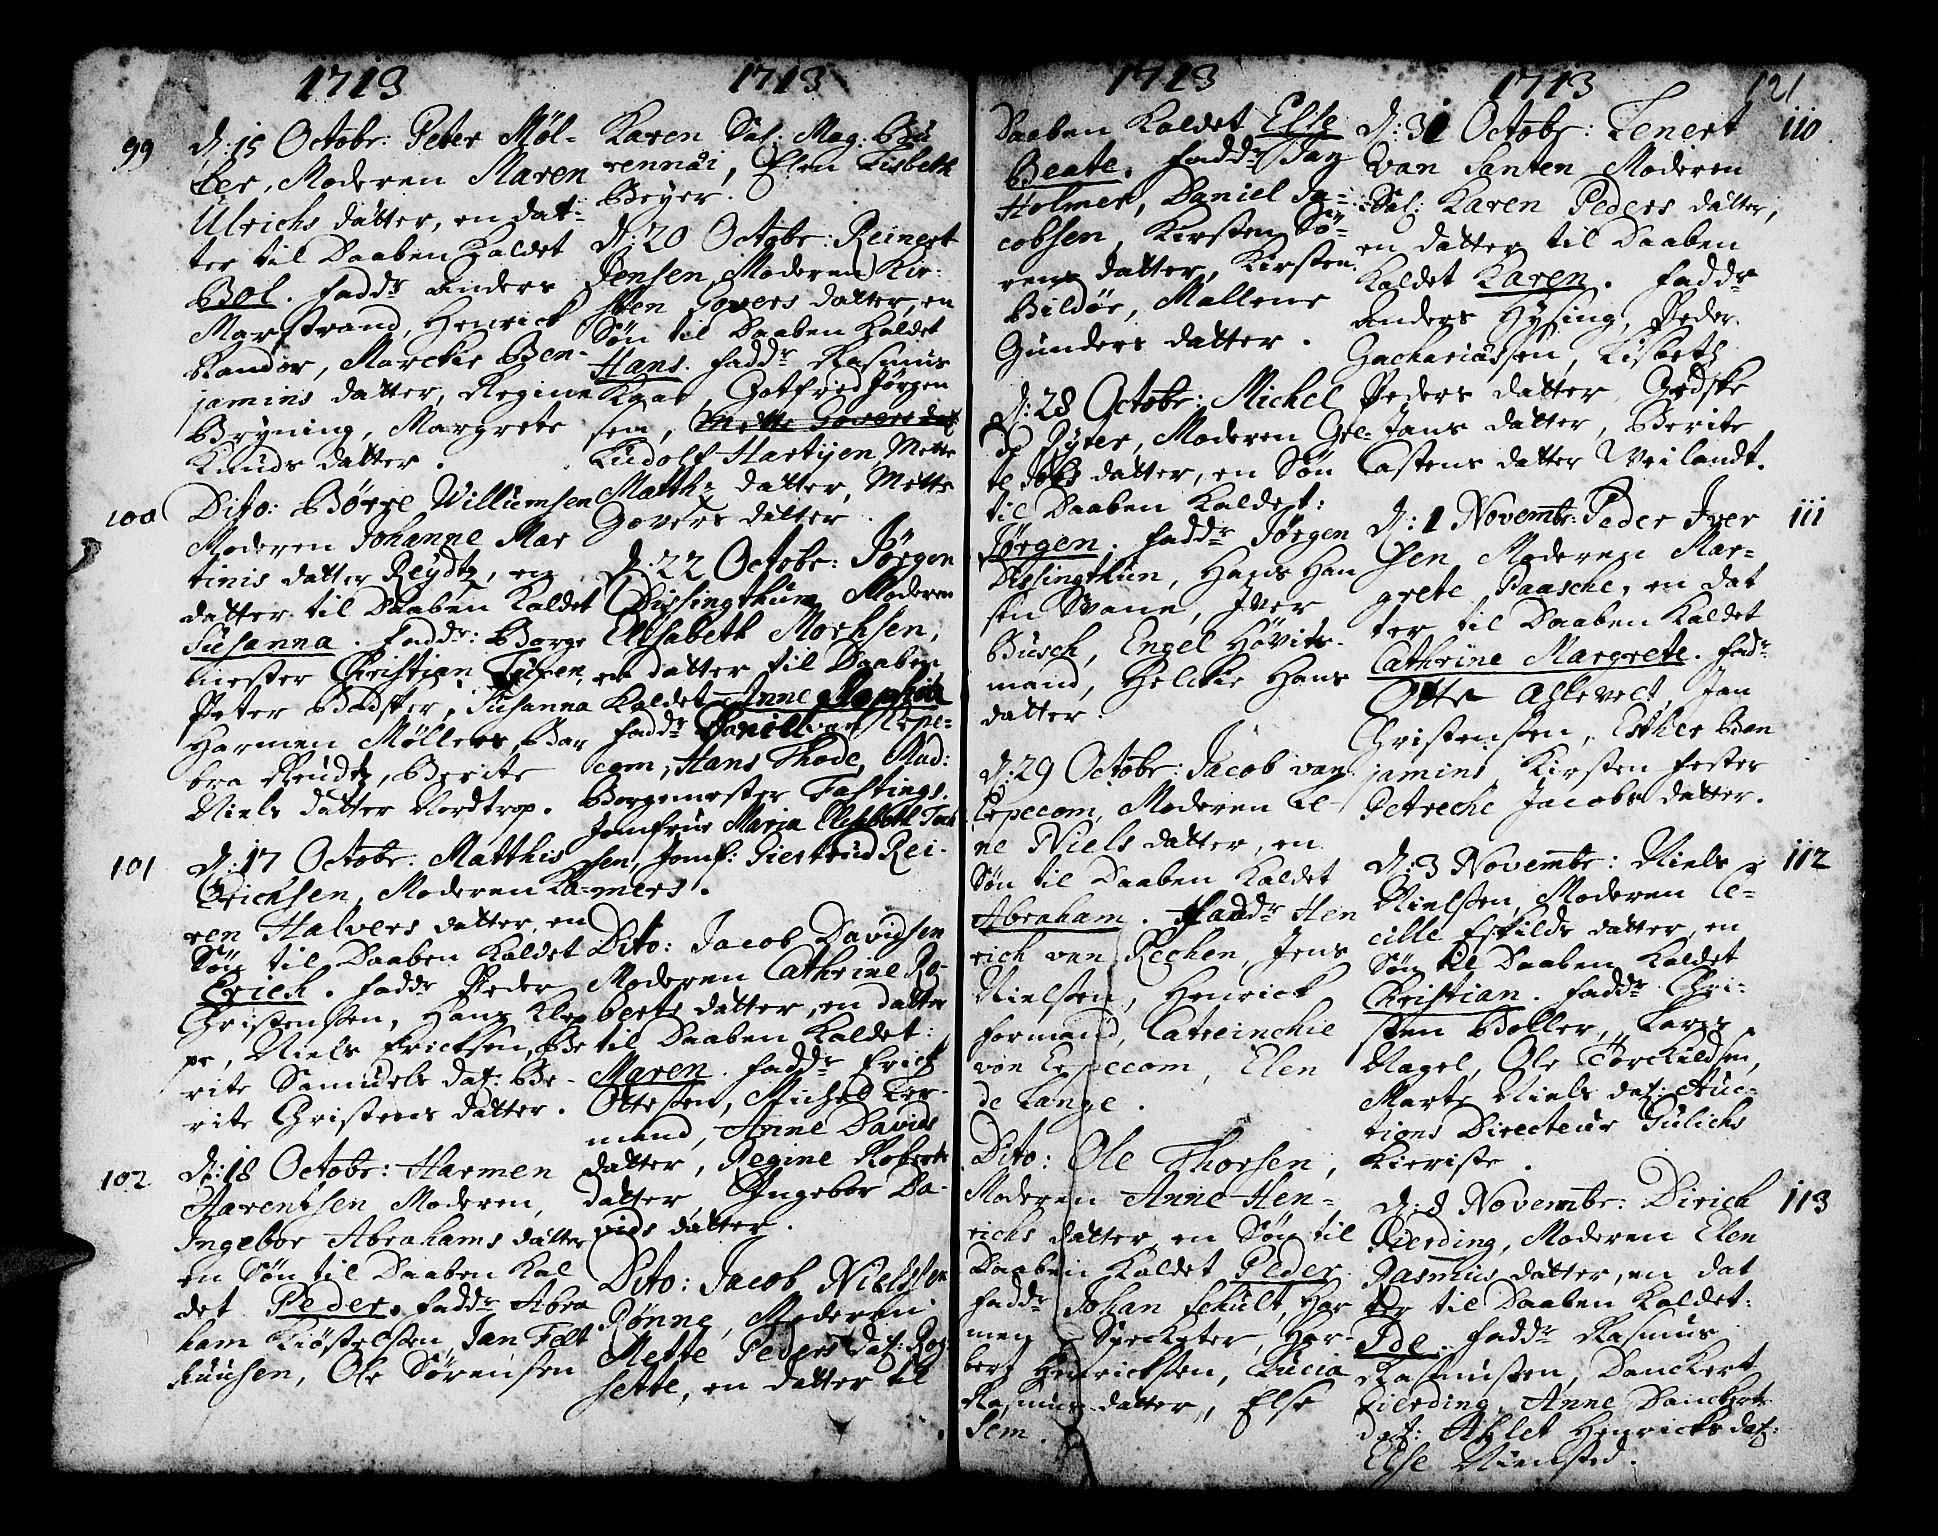 1713
99 D: 15 Octobr: Peter Møl-
ler, Moderen Maren
Ulrichs datter, en dat-
ter til Daaben Kaldet
Bol. Faddr Anders
Marstrand, Henrick
Randor, Marckie Ben-
jamins datter, Regine
Bryning, Margrete
Knuds datter.
100 Dito: Børre Willumsen
Moderen Johanne Mar
tinis datter Reydtz, en
datter til Daaben Kaldet
Susanna. Faddr: Borge
mester Christian
Peter Bødker, Susanna
Harmen Møllers, Bar
bra Reudtz, Berite
Niels datter Nordtrop.
101 D: 17 Octobr: Matthis
Erichsen, Moderen Ka-
ren Halvers datter, en
Søn til Daaben Kaldet
Erich. Faddr Peder
Christensen, Hans Klep
pe, Niels Ericksen, Be
rite Samuels dat: Be-
rite Christens datter.
102 D: 18 Octobr: Harmen
Harentsen Moderen,
Ingebor Abrahams datter
en Søn til Daaben Kal
det Peder. Faddr Abra
ham Kiøstelsen, Jan Felt
huusen, Ole Sørensen
1713
Karen Sal: Mag: Bu
rennæi, Elen Lisbeth
Beyer.
D: 20 Octobr: Reinert
Jensen, Moderen Kir-
sten Govers datter, en
Søn til Daaben Kaldet
Hans. Faddr Rasmus
Kaae, Gotfried Jørgen
sen, Mette Govers dat
Ludolf Hartijen, Mette
Matthz datter, Mette
Govers datter.
D: 22 Octobr: Jørgen
Dissingthun Moderen
Elisabeth Mochsen,
en datter til Daaben
Kaldet Anne
Faddr Daniel van Lepe-
com, Hans Thode, Rad:
Borgemester Fastings.
Jomfrue Maria Elisbeth
sen, Jomf: Giertrud Rei-
mers.
Dito: Jacob Davidsen
Moderen Cathrine Ro-
berts datter, en datter
til Daaben Kaldet:
Maren. Faddr Erick
Ottesen, Michel Ler-
mand, Anne Davids
datter, Regine Roberts
datter Ingebor Da-
vids datter.
Dito: Jacob Nielssen
Rønne, Moderen
Mette Peders dat: Ros
sette, en datter til
1713
Daaben Kaldet Else
Beate. Faddr Jan
Holmer, Daniel Ja-
cobsen, Kirsten Sø-
rens datter, Kirsten
Bildøe, Mallene
Gunders datter.
D: 28 Octobr: Michel
de Ryter, Moderen Gre-
te datter, en Søn
til Daaben Kaldet:
Jørgen. Faddr Jørgen
Dissingthun, Hans Han
sen Svane, Iver
Busch, Engel Høvits-
mand, Helckie Hans
datter.
D: 29 Octobr: Jacob van
Lepecom, Moderen Le-
ne Niels datter, en
Søn til Daaben Kaldet
Abraham. Faddr Hen
rich van Rechen, Jens
Nielsen, Henrick
Formand, Catreinchie
von Lepecom, Elen
de Lange.
Dito: Ole Thorsen,
Moderen Anne Hen-
richs datter, en Søn til
Daaben Kaldet Peder
Faddr Johan Schult, Har
men Specketer, Har-
bert Henricksen, Lucia
Rasmus datter, Else
Sem.
1713 121
D: 31 Octobr: Lenert 110
van Santen Moderen
Sal: Karen Peders datter,
en datter til Daaben
Kaldet Karen. Faddr
Anders Hysing, Peder
Zachariassen, Lisbeth
Peders datter, Gedske
Jans datter, Berite
Castens datter Weilandt.
D: 1 Novembr: Peder Iver 111
sen Moderen Mar-
grete Paasche, en dat
ter til Daaben Kaldet
Cathrine Margrete. Fadr
Otte Allevelt, Jan
Christensen, Esther Ben
jamins, Kirsten Fester
Petreche Jacobs datter.
D: 3 Novembr: Niels 112
Nielsen, Moderen Ce-
cille Eskilds datter, en
Søn til Daaben Kaldet
Christian. Faddr Chri-
sten Boller, Lars
Nagel, Ole Torckildsen,
Marte Niels dat: Auc-
tions Directeur Gulichs
Kieriste.
D: 8 Novembr: Dirich 113
Gierding, Moderen Elen
Rasmus datter, en dat
ter til Daaben Kaldet:
Ide. Faddr Rasmus
Rasmusen, Danckert
Gierding, Anne Danckerts
dat: Ahlet Henricks dat:
Else Niensted.